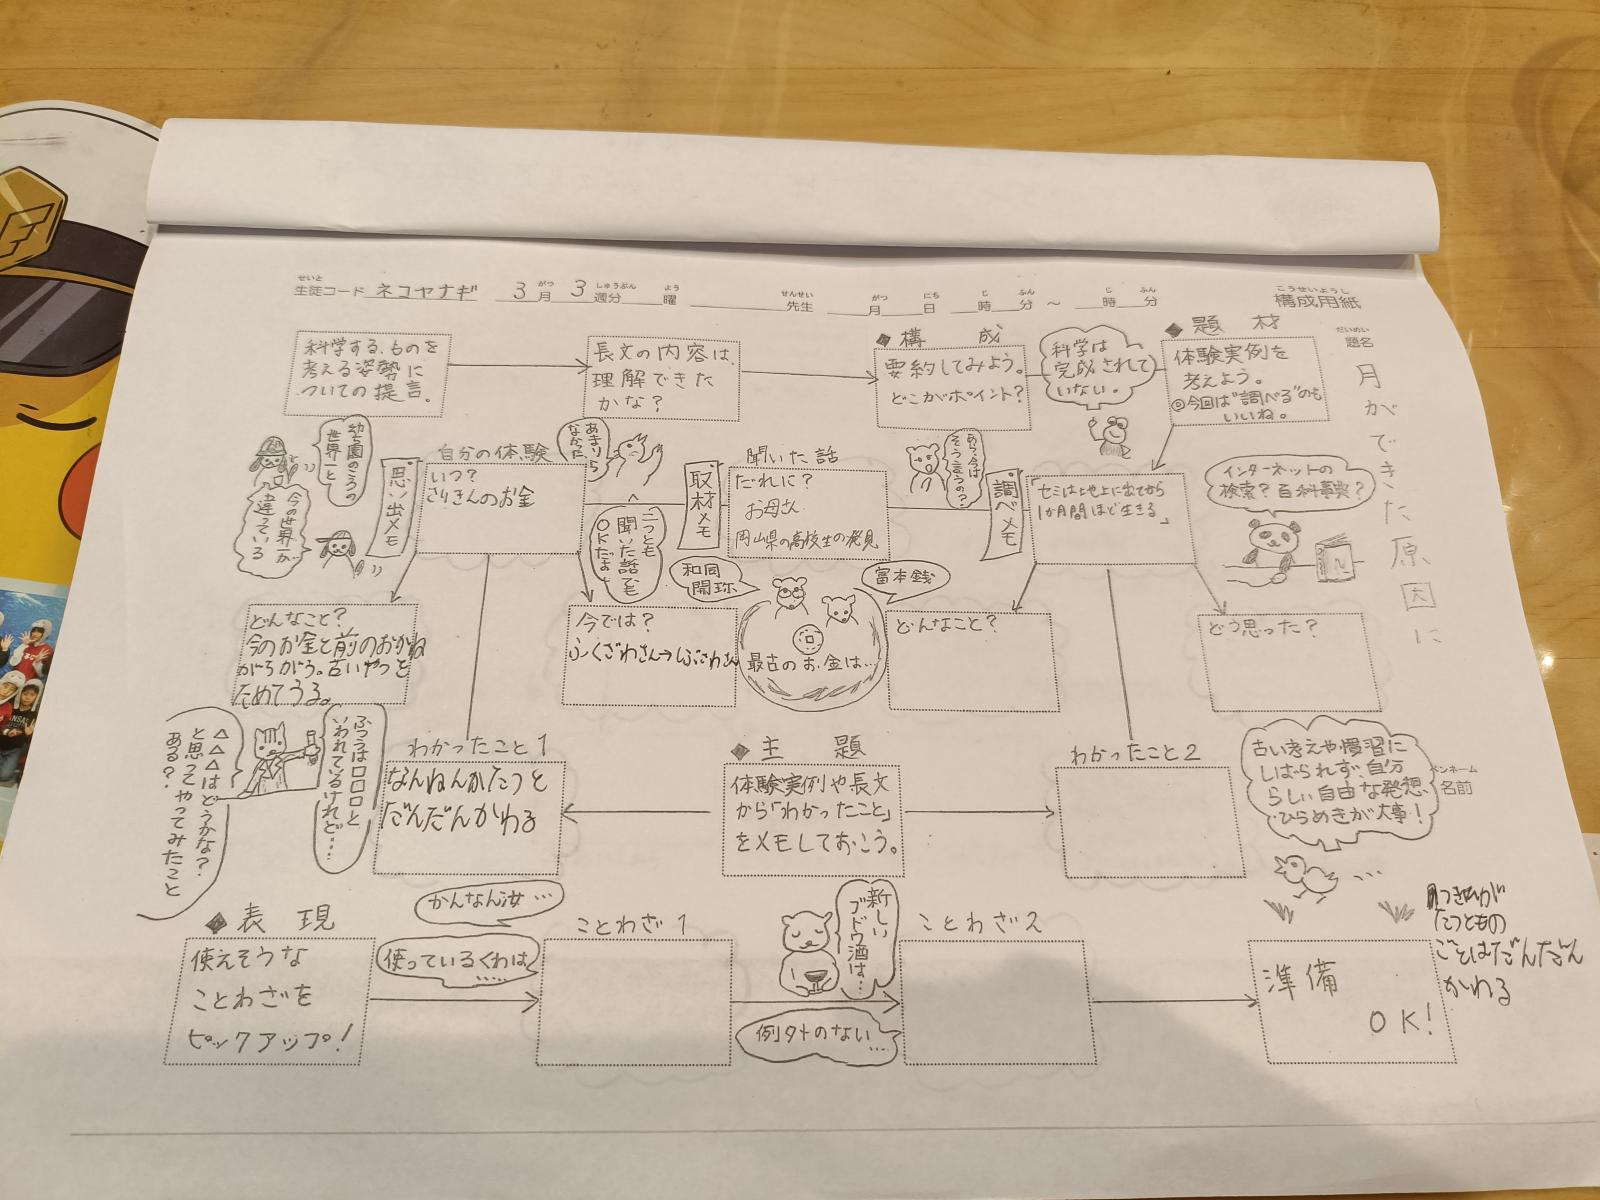 せいと
生徒コード ネコヤナギ 3月 3週分 曜 先生 月 日 時 分 ～ 時 分
がつ しゅうぶん よう せんせい がつ にち じ ふん じ ふん
こうせいようし
構成用紙
だいめい
題名
月ができた原因に
◆題材
体験実例を
考えよう。
◎今回は"調べる"のも
いいね。
科学は
完成されて
いない。
◆構成
要約してみよう。
どこがポイント?
長文の内容は、
理解できた
かな?
科学する、ものを
考える姿勢に
ついての提言。
幼稚園のころの
世界と
今の世界が
違っている
思い出メモ
自分の体験
いつ?
さいきんのお金
あまり
なかった
二つとも
聞いた話でも
OKだよ
取材メモ
聞いた話
だれに?
お母さん
岡山県の高校生の発見
あら、今は
そう言うの?
調べメモ
「セミは地上に出てから
1か月間ほど生きる」
インターネットの
検索?百科事典?
どんなこと?
今のお金と前のおかね
がちがう。古いやつを
ためてうる。
今では?
ふくざわさん→しぶさわさん
和同
開珎
富本銭
最古のお金は…
どんなこと?
どう思った?
ふつうは□□□と
いわれているけれど…
△△△はどうかな?
と思ってやってみたこと
ある?
わかったこと1
なんねんかたつと
だんだんかわる
◆主題
体験実例や長文
から「わかったこと」
をメモしておこう。
わかったこと2
古い考えや慣習に
しばられず、自分
らしい自由な発想、
ひらめきが大事!
ペンネーム
名前
◆表現
使えそうな
ことわざを
ピックアップ!
かんなん汝…
使っているくわは
……
ことわざ1
新しい
ブドウ酒は…
例外のない…
ことわざ2
準備
OK!
つきひが
たつともの
ごとはだんだん
かわる